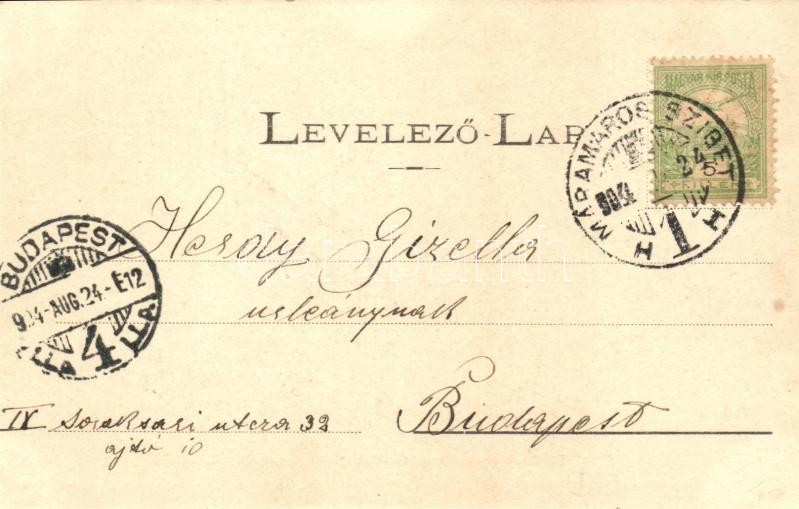 LEVELEZŐ-LAP
MAGYAR KIR. POSTA
MÁRAMAROS SZIGET
904
24
5
H 1 H
Gizella
BUDAPEST
904-AUG.24-É12
4
Budapest
IX Soroksári utcza 32
ajtó 10